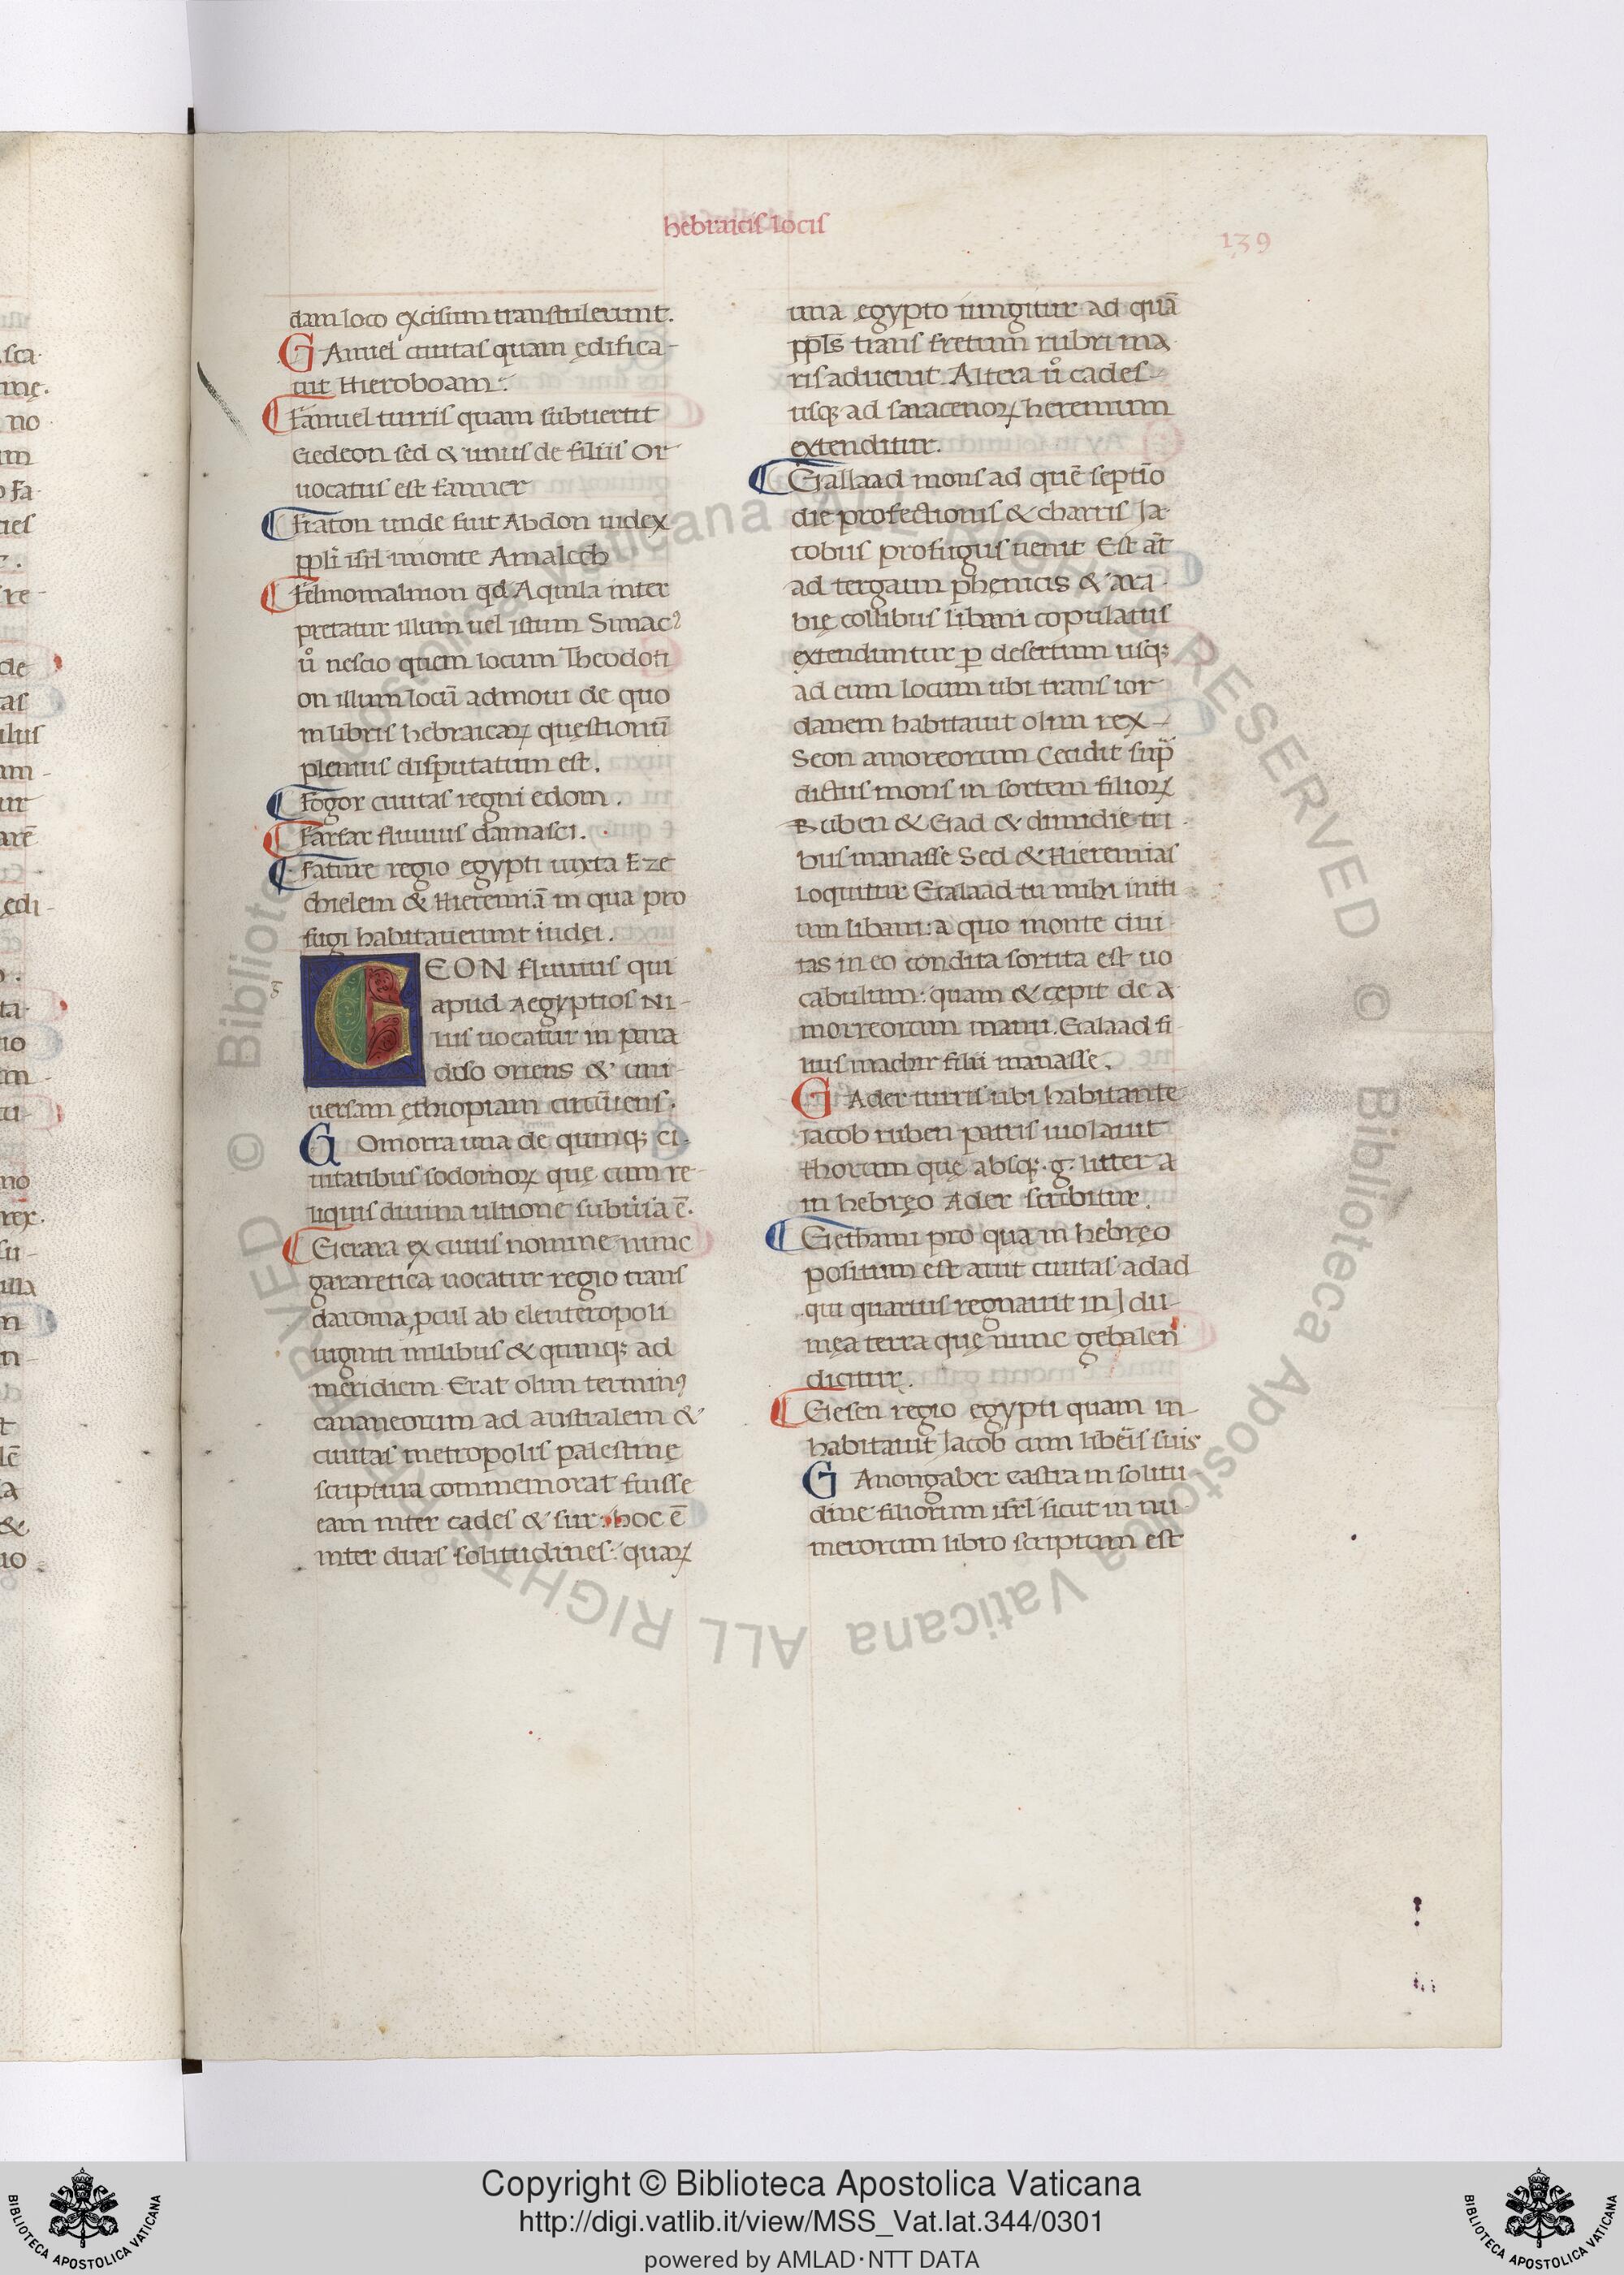 hebraicis locis
139
dam loco excisum transtulerunt.
GAnuel ciuitas quam ędifica-
uit Hieroboam.
Fanuel turris quam subuertit
Gedeon sed & unus de filiis Or
uocatus est fanuer
Fraton unde fuit Abdon iudex
ppl̃i isrl̃ imonte Amalech
Felmomalmon qd̃ Aquila inter
pretatur illum uel istum Simacꝰ
ũ nescio quem locum Theodoti
on illum locũ admoui de quo
in libris hebraicaꝝ quęstionũ
plenius disputatum est.
Fogor ciuitas regni edom.
Farfar fluuius damasci.
Fature regio egypti iuxta Eze
chielem & Hieremiã in qua pro
fugi habitauerunt iudei.
GEON fluuius qui
apud Aegyptios Ni-
lus uocatur in para
diso oriens & uni-
uersam ęthiopiam circũiens.
GOmorra una de quinq; ci-
uitatibus sodomoꝝ quę cum re-
liquis diuina ultione subũsa ẽ.
Gerara ex cuius nomine nunc
gararetica uocatur regio trans
daroma, pcul ab eleuteropoli
uiginti milibus & quinq; ad
meridiem. Erat olim terminꝰ
cananeorum ad australem &
ciuitas metropolis palestinę
scriptura commemorat fuisse
eam inter cades & sur: hoc ẽ
inter duas solitudines: quaꝝ
una egypto iungitur ad quã
ppl̃s trans fretum rubri ma
ris aduenit. Altera ũ cades
usq; ad saracenoꝝ heremum
extenditur.
Gallaad mons ad quẽ septĩo
die profectionis & charris Ja
cobus profugus uenit Est aũt
ad tergum phęnicis & ara
bię collibus libani copulatus
extenduntur p desertum usq;
ad eum locum ubi trans ior
danem habitauit olim rex
Seon amoreorum Cecidit sup̃
dictus mons in sortem filioꝝ
Ruben & Gad & dimidie tri
bus manasse Sed & Hieremias
loquitur Galaad tu mihi initi
um libani: a quo monte ciui
tas in eo condita sortita est uo
cabulum: quam & cępit de a
morreorum manu. Galaad fi
lius machir filii manasse.
GAder turris ubi habitante
iacob ruben patris uiolauit
thorum quę absq; .g. litter a
in hebręo Ader scribitur.
Gethaim pro qua in hebręo
positum est auit ciuitas adad
qui quartus regnauit in Jdu-
mea terra quę nunc gebalen
dicitur.
Gesen regio egypti quam in
habitauit Jacob cum liberis suis
GAnongaber castra in solitu
dine filiorum isrl̃ sicut in nu
merorum libro scriptum est
Copyright © Biblioteca Apostolica Vaticana
http://digi.vatlib.it/view/MSS_Vat.lat.344/0301
powered by AMLAD·NTT DATA
BIBLIOTECA APOSTOLICA VATICANA
BIBLIOTECA APOSTOLICA VATICANA
© Biblioteca Apostolica Vaticana ALL RIGHTS RESERVED © Biblioteca Apostolica Vaticana ALL RIGHTS RESERVED